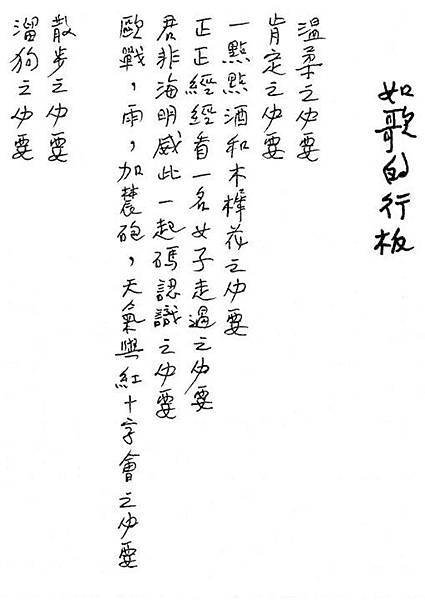 如歌的行板
溫柔之必要
肯定之必要
一點點酒和木樨花之必要
正正經經看一名女子走過之必要
君非海明威此一起碼認識之必要
歐戰，雨，加農砲，天氣與紅十字會之必要
散步之必要
溜狗之必要